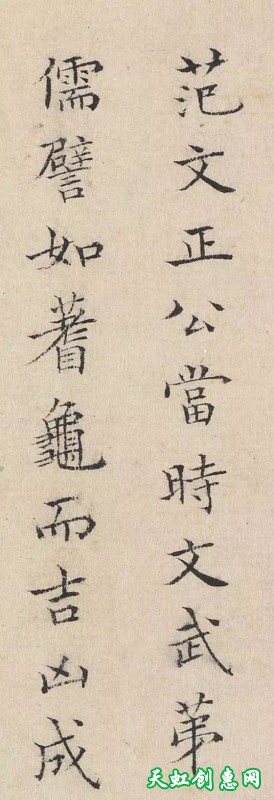 范文正公當時文武第
儒譬如蓍龜而吉凶成
天虹创惠网